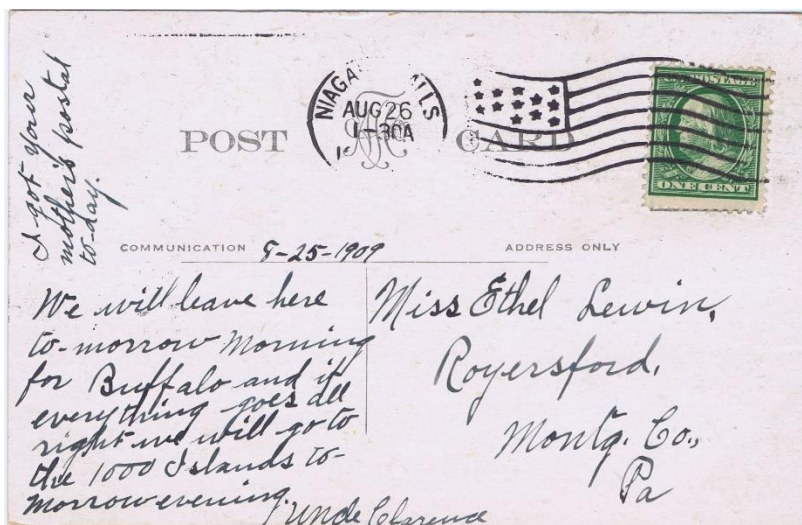 I got your
mother's postal
to-day.
POST CARD
NIAGA ALLS
AUG 26
1-30A
U.S. POSTAGE
ONE CENT
COMMUNICATION
8-25-1909
ADDRESS ONLY
We will leave here
to-morrow Morning
for Buffalo and if
everything goes all
right we will go to
the 1000 Islands to-
morrow evening.
Uncle Clarence
Miss Ethel Lewin,
Royersford,
Montg. Co.,
Pa